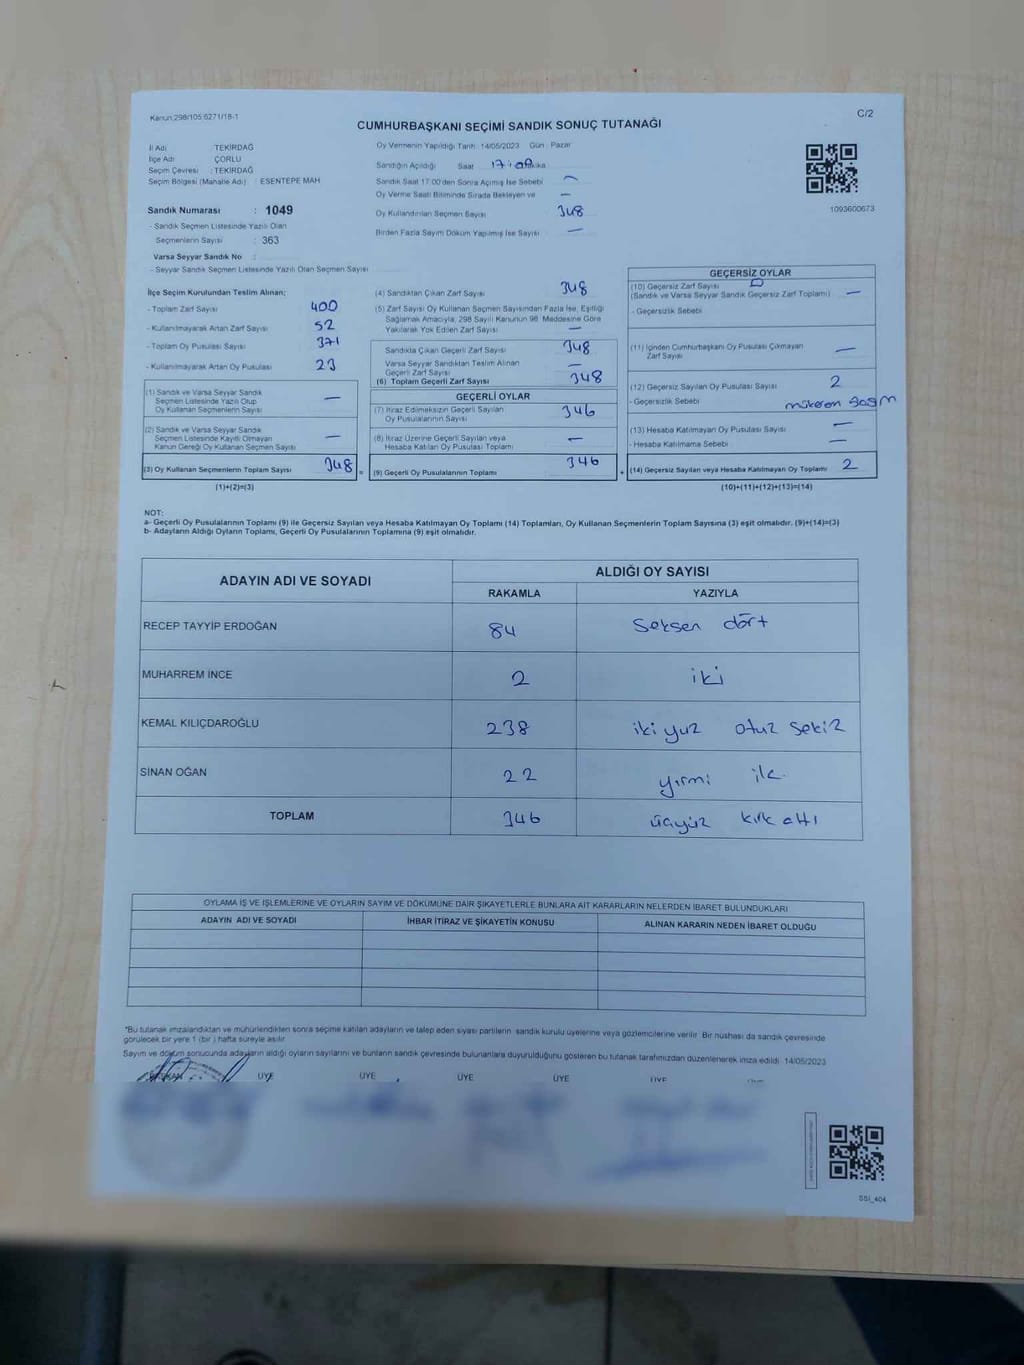 Kanun:298/105;6271/18-1
C/2
CUMHURBAŞKANI SEÇİMİ SANDIK SONUÇ TUTANAĞI
İl Adı : TEKİRDAĞ
İlçe Adı : ÇORLU
Seçim Çevresi : TEKİRDAĞ
Seçim Bölgesi (Mahalle Adı) : ESENTEPE MAH
Sandık Numarası : 1049
- Sandık Seçmen Listesinde Yazılı Olan
Seçmenlerin Sayısı : 363
Varsa Seyyar Sandık No :
- Seyyar Sandık Seçmen Listesinde Yazılı Olan Seçmen Sayısı
Oy Vermenin Yapıldığı Tarih : 14/05/2023 Gün : Pazar
Sandığın Açıldığı Saat
Sandık Saat 17:00'den Sonra Açılmış İse Sebebi —
Oy Verme Saati Bitiminde Sırada Bekleyen ve —
Oy Kullandırılan Seçmen Sayısı 348
Birden Fazla Sayım Döküm Yapılmış İse Sayısı —
1093600673
İlçe Seçim Kurulundan Teslim Alınan;
- Toplam Zarf Sayısı 400
- Kullanılmayarak Artan Zarf Sayısı 52
- Toplam Oy Pusulası Sayısı 371
- Kullanılmayarak Artan Oy Pusulası 23
(1) Sandık ve Varsa Seyyar Sandık
Seçmen Listesinde Yazılı Olup
Oy Kullanan Seçmenlerin Sayısı —
(2) Sandık ve Varsa Seyyar Sandık
Seçmen Listesinde Kayıtlı Olmayan
Kanun Gereği Oy Kullanan Seçmen Sayısı —
(3) Oy Kullanan Seçmenlerin Toplam Sayısı 348 =
(1)+(2)=(3)
(4) Sandıktan Çıkan Zarf Sayısı 348
(5) Zarf Sayısı Oy Kullanan Seçmen Sayısından Fazla İse, Eşitliği
Sağlamak Amacıyla, 298 Sayılı Kanunun 98. Maddesine Göre
Yakılarak Yok Edilen Zarf Sayısı —
Sandıkta Çıkan Geçerli Zarf Sayısı 348
Varsa Seyyar Sandıktan Teslim Alınan
Geçerli Zarf Sayısı —
(6) Toplam Geçerli Zarf Sayısı 348
GEÇERLİ OYLAR
(7) İtiraz Edilmeksizin Geçerli Sayılan
Oy Pusulalarının Sayısı 346
(8) İtiraz Üzerine Geçerli Sayılan veya
Hesaba Katılan Oy Pusulalarının Toplamı —
(9) Geçerli Oy Pusulalarının Toplamı 346 +
GEÇERSİZ OYLAR
(10) Geçersiz Zarf Sayısı
(Sandık ve Varsa Seyyar Sandık Geçersiz Zarf Toplamı) —
- Geçersizlik Sebebi
(11) İçinden Cumhurbaşkanı Oy Pusulası Çıkmayan
Zarf Sayısı —
(12) Geçersiz Sayılan Oy Pusulası Sayısı 2
- Geçersizlik Sebebi
(13) Hesaba Katılmayan Oy Pusulası Sayısı —
- Hesaba Katılmama Sebebi —
(14) Geçersiz Sayılan veya Hesaba Katılmayan Oy Toplamı 2
(10)+(11)+(12)+(13)=(14)
NOT:
a- Geçerli Oy Pusulalarının Toplamı (9) ile Geçersiz Sayılan veya Hesaba Katılmayan Oy Toplamı (14) Toplamları, Oy Kullanan Seçmenlerin Toplam Sayısına (3) eşit olmalıdır. (9)+(14)=(3)
b- Adayların Aldığı Oyların Toplamı, Geçerli Oy Pusulalarının Toplamına (9) eşit olmalıdır.
ADAYIN ADI VE SOYADI ALDIĞI OY SAYISI
RAKAMLA YAZIYLA
RECEP TAYYİP ERDOĞAN 84 Seksen dört
MUHARREM İNCE 2 iki
KEMAL KILIÇDAROĞLU 238 iki yuz otuz sekiz
SİNAN OĞAN 22 yirmi
TOPLAM 346 üçyüz kırk altı
OYLAMA İŞ VE İŞLEMLERİNE VE OYLARIN SAYIM VE DÖKÜMÜNE DAİR ŞİKAYETLERLE BUNLARA AİT KARARLARIN NELERDEN İBARET BULUNDUKLARI
ADAYIN ADI VE SOYADI İHBAR İTİRAZ VE ŞİKAYETİN KONUSU ALINAN KARARIN NEDEN İBARET OLDUĞU
*Bu tutanak imzalandıktan ve mühürlendikten sonra seçime katılan adayların ve talep eden siyasi partilerin sandık kurulu üyelerine veya gözlemcilerine verilir. Bir nüshası da sandık çevresinde
görülecek bir yere 1 (bir) hafta süreyle asılır.
Sayım ve döküm sonucunda adayların aldığı oyların sayılarını ve bunların sandık çevresinde bulunanlara duyurulduğunu gösteren bu tutanak tarafımızdan düzenlenerek imza edildi. 14/05/2023
BAŞKAN ÜYE ÜYE ÜYE ÜYE ÜYE
SSİ_404